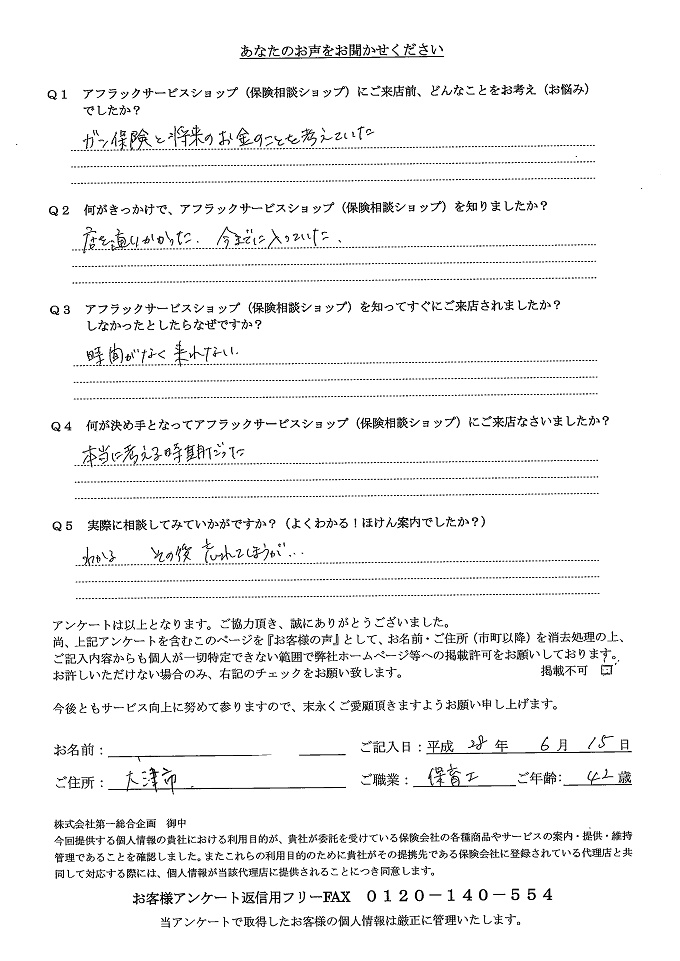 あなたのお声をお聞かせください
Q1 アフラックサービスショップ（保険相談ショップ）にご来店前、どんなことをお考え（お悩み）
でしたか？
ガン保険と将来のお金のことを考えていた
Q2 何がきっかけで、アフラックサービスショップ（保険相談ショップ）を知りましたか？
店を通りかかった、今までに入っていた、
Q3 アフラックサービスショップ（保険相談ショップ）を知ってすぐにご来店されましたか？
しなかったとしたらなぜですか？
時間がなく来れない.
Q4 何が決め手となってアフラックサービスショップ（保険相談ショップ）にご来店なさいましたか？
本当に考える時期だった
Q5 実際に相談してみていかがですか？（よくわかる！ほけん案内でしたか？）
わかる その後 忘れてしまうが…
アンケートは以上となります。ご協力頂き、誠にありがとうございました。
尚、上記アンケートを含むこのページを『お客様の声』として、お名前・ご住所（市町以降）を消去処理の上、
ご記入内容からも個人が一切特定できない範囲で弊社ホームページ等への掲載許可をお願いしております。
お許しいただけない場合のみ、右記のチェックをお願い致します。 掲載不可 □
今後ともサービス向上に努めて参りますので、末永くご愛顧頂きますようお願い申し上げます。
お名前： ご記入日：平成 28 年 6 月 15 日
ご住所： 大津市 ご職業： 保育士 ご年齢： 42 歳
株式会社第一総合企画 御中
今回提供する個人情報の貴社における利用目的が、貴社が委託を受けている保険会社の各種商品やサービスの案内・提供・維持
管理であることを確認しました。またこれらの利用目的のために貴社がその提携先である保険会社に登録されている代理店と共
同して対応する際には、個人情報が当該代理店に提供されることにつき同意します。
お客様アンケート返信用フリーFAX ０１２０－１４０－５５４
当アンケートで取得したお客様の個人情報は厳正に管理いたします。